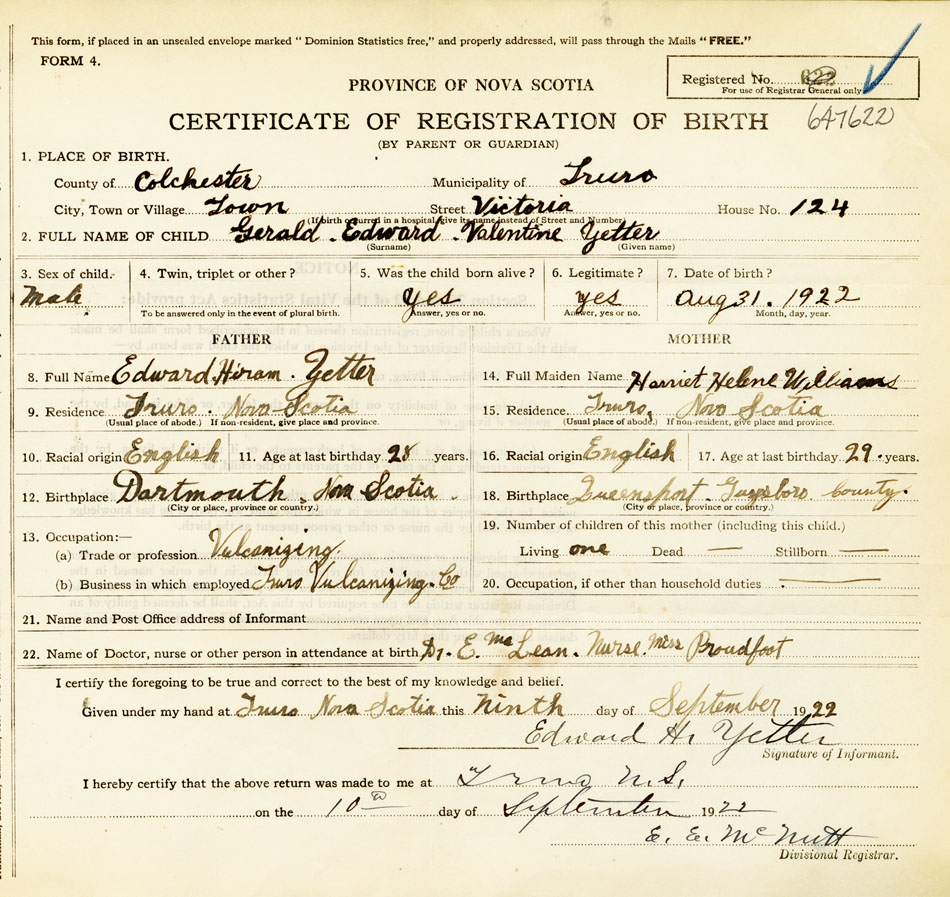 This form, if placed in an unsealed envelope marked "Dominion Statistics free," and properly addressed, will pass through the Mails "FREE."
FORM 4.
Registered No. 622
For use of Registrar General only
PROVINCE OF NOVA SCOTIA
647622
CERTIFICATE OF REGISTRATION OF BIRTH
(BY PARENT OR GUARDIAN)
1. PLACE OF BIRTH.
County of Colchester Municipality of Truro
City, Town or Village Town Street Victoria House No. 124
(If birth occurred in a hospital, give its name instead of Street and Number)
2. FULL NAME OF CHILD Gerald Edward Valentine Yetter
(Surname) (Given name)
3. Sex of child.- 4. Twin, triplet or other? 5. Was the child born alive? 6. Legitimate? 7. Date of birth?
Male yes yes Aug 31. 1922
To be answered only in the event of plural birth. Answer, yes or no. Answer, yes or no. Month, day, year.
FATHER MOTHER
8. Full Name Edward Hiram Yetter 14. Full Maiden Name Harriet Helene Williams
9. Residence Truro. Nova Scotia 15. Residence. Truro, Nova Scotia
(Usual place of abode.) If non-resident, give place and province. (Usual place of abode.) If non-resident, give place and province.
10. Racial origin English 11. Age at last birthday 28 years. 16. Racial origin English 17. Age at last birthday 29 years.
12. Birthplace Dartmouth Nova Scotia 18. Birthplace Queensport Guysboro County.
(City or place, province or country.) (City or place, province or country.)
13. Occupation:— 19. Number of children of this mother (including this child.)
(a) Trade or profession Vulcanizing. Living one Dead — Stillborn —
(b) Business in which employed Truro Vulcanizing Co 20. Occupation, if other than household duties —
21. Name and Post Office address of Informant
22. Name of Doctor, nurse or other person in attendance at birth Dr. E. McLean. Nurse Miss Proudfoot
I certify the foregoing to be true and correct to the best of my knowledge and belief.
Given under my hand at Truro Nova Scotia this Ninth day of September 1922
Edward H. Yetter
Signature of Informant.
I hereby certify that the above return was made to me at Truro N.S.
on the 10th day of September 1922
E. E. McNutt
Divisional Registrar.